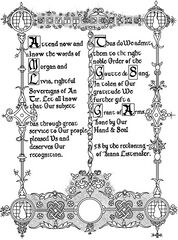 Attend now and
know the words of
Morgan and
Livia, rightful
Sovereigns of An
Tir. Let all know
that Our subject
has through great
service to Our people
pleased Us and
deserves Our
recognition.
Thus do We admit
them to the right
noble Order of the
Goutte de Sang.
In token of Our
gratitude We
further gift a
Grant of Arms.
Done by Our
Hand & Soul
58 by the reckoning
of Ianna Listmaker.